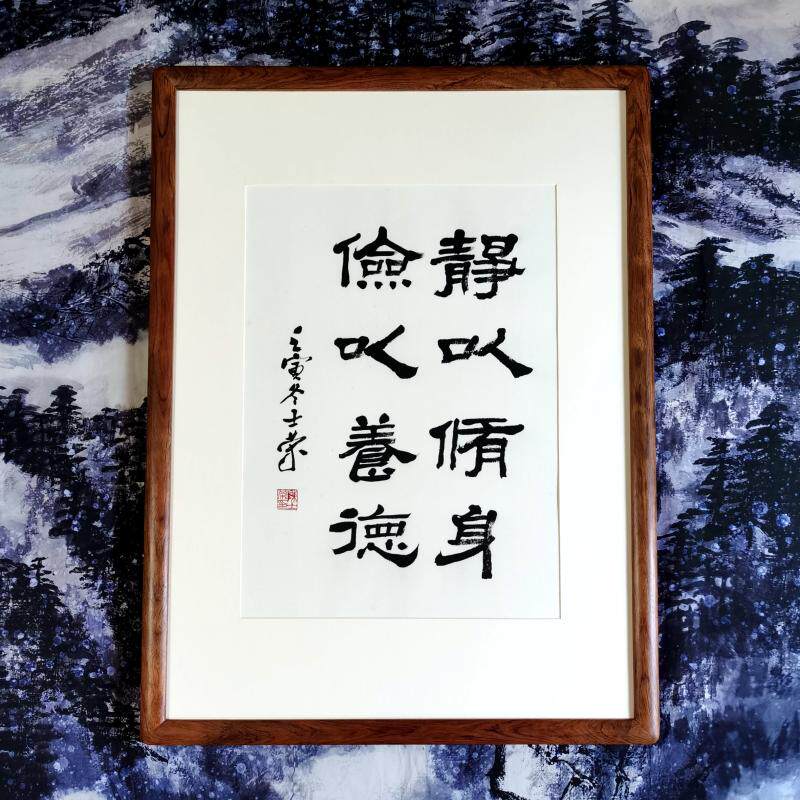 静以脩身
儉以養德
壬寅冬士荣